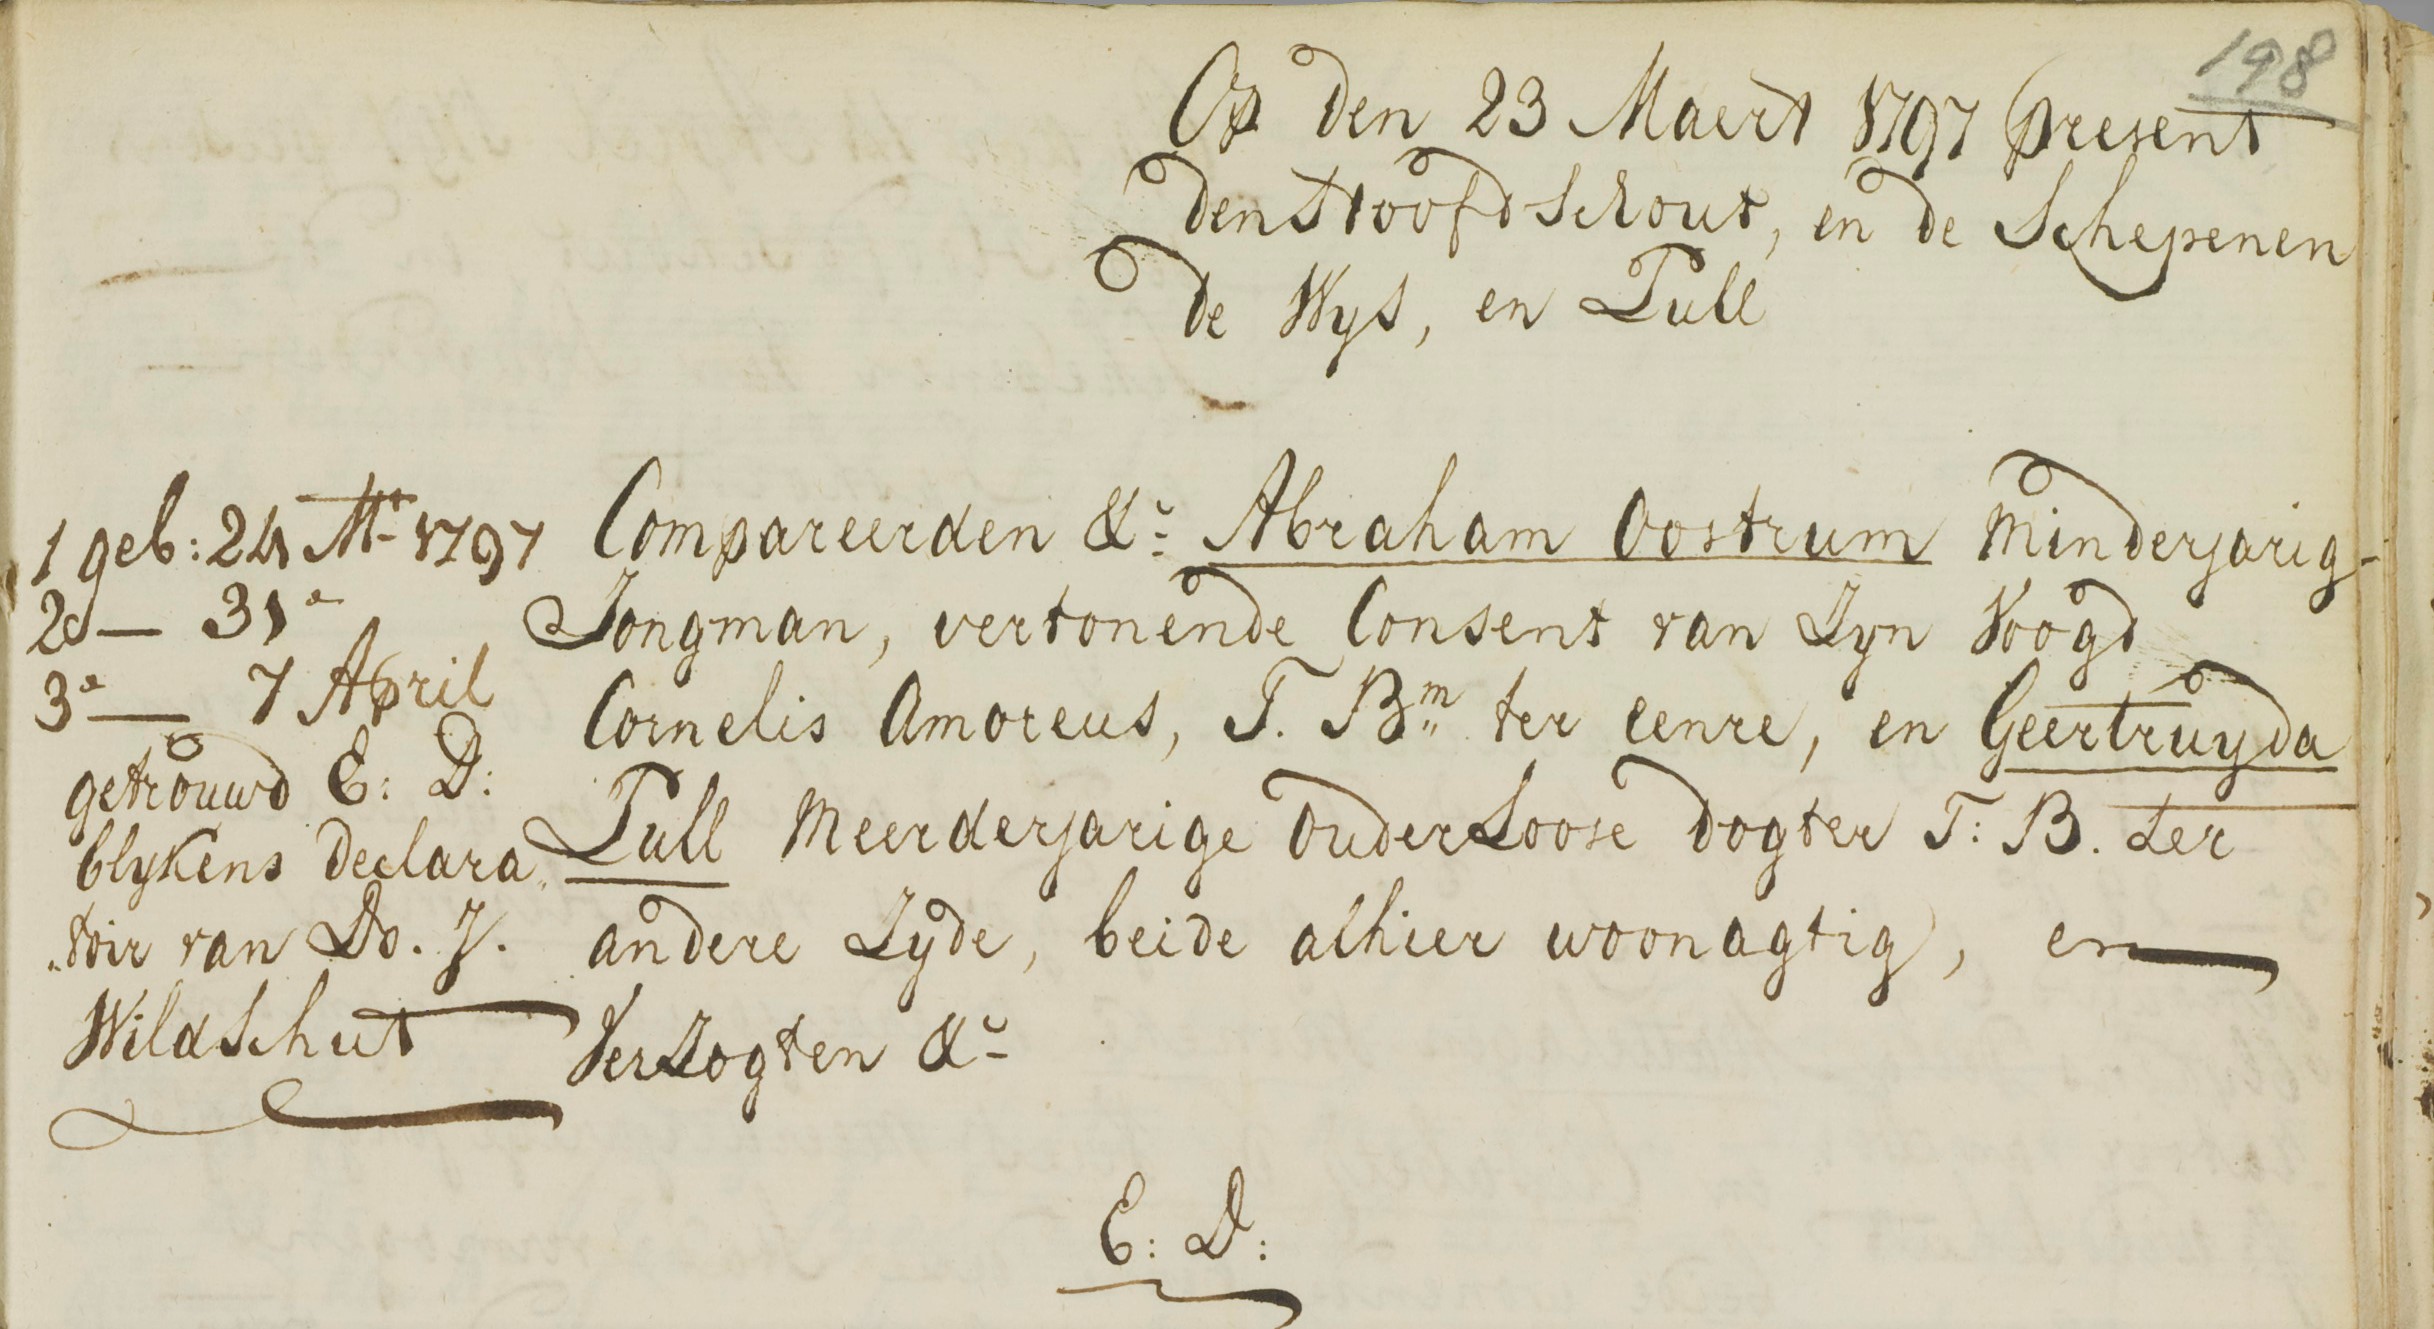 198
Op den 23 Maert 1797 present
den Hoofd Schout, en de Schepenen
de Wys, en Tull
Compareerden &c: Abraham Oostrum Minderjarig
Jongman, vertonende Consent van Zyn Voogd
Cornelis Amoreus, T. Bm ter eenre, en Geertruyda
Tull Meerderjarige OuderLoose Dogter T: B. ter
andere Zyde, beide alhier woonagtig, en
Verzogten &c
E: D:
1 geb: 24 Mt 1797
2e — 31e
3e — 7 April
getrouwd E: D:
blykens declara„
„toir van Do. J.
Wildschut